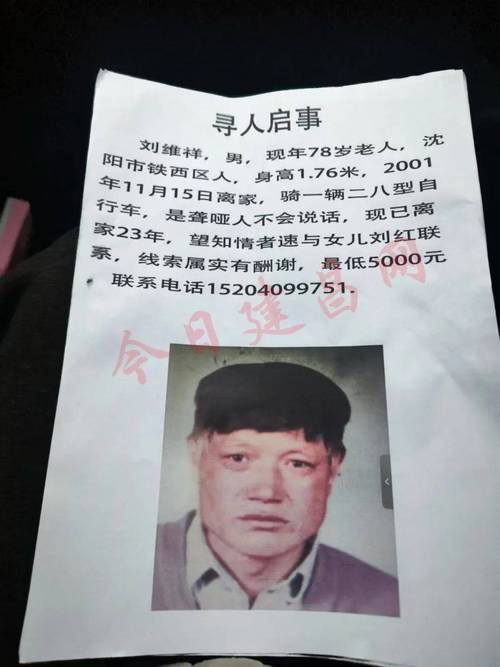 寻人启事
刘维祥，男，现年78岁老人，沈
阳市铁西区人，身高1.76米，2001
年11月15日离家，骑一辆二八型自
行车，是聋哑人不会说话，现已离
家23年，望知情者速与女儿刘红联
系，线索属实有酬谢，最低5000元
联系电话15204099751.
今日建昌网